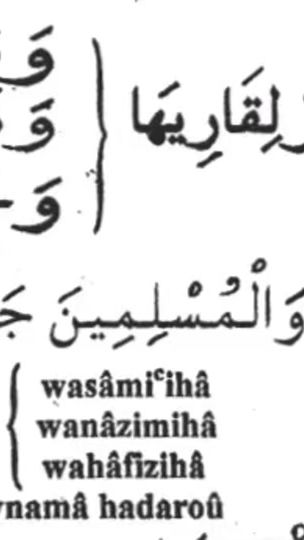 لِقَارِيهَا
وَ
وَ
وَ
وَالْمُسْلِمِينَ
wasâmiᶜihâ
wanâzimihâ
wahâfizihâ
ynamâ hadaroû